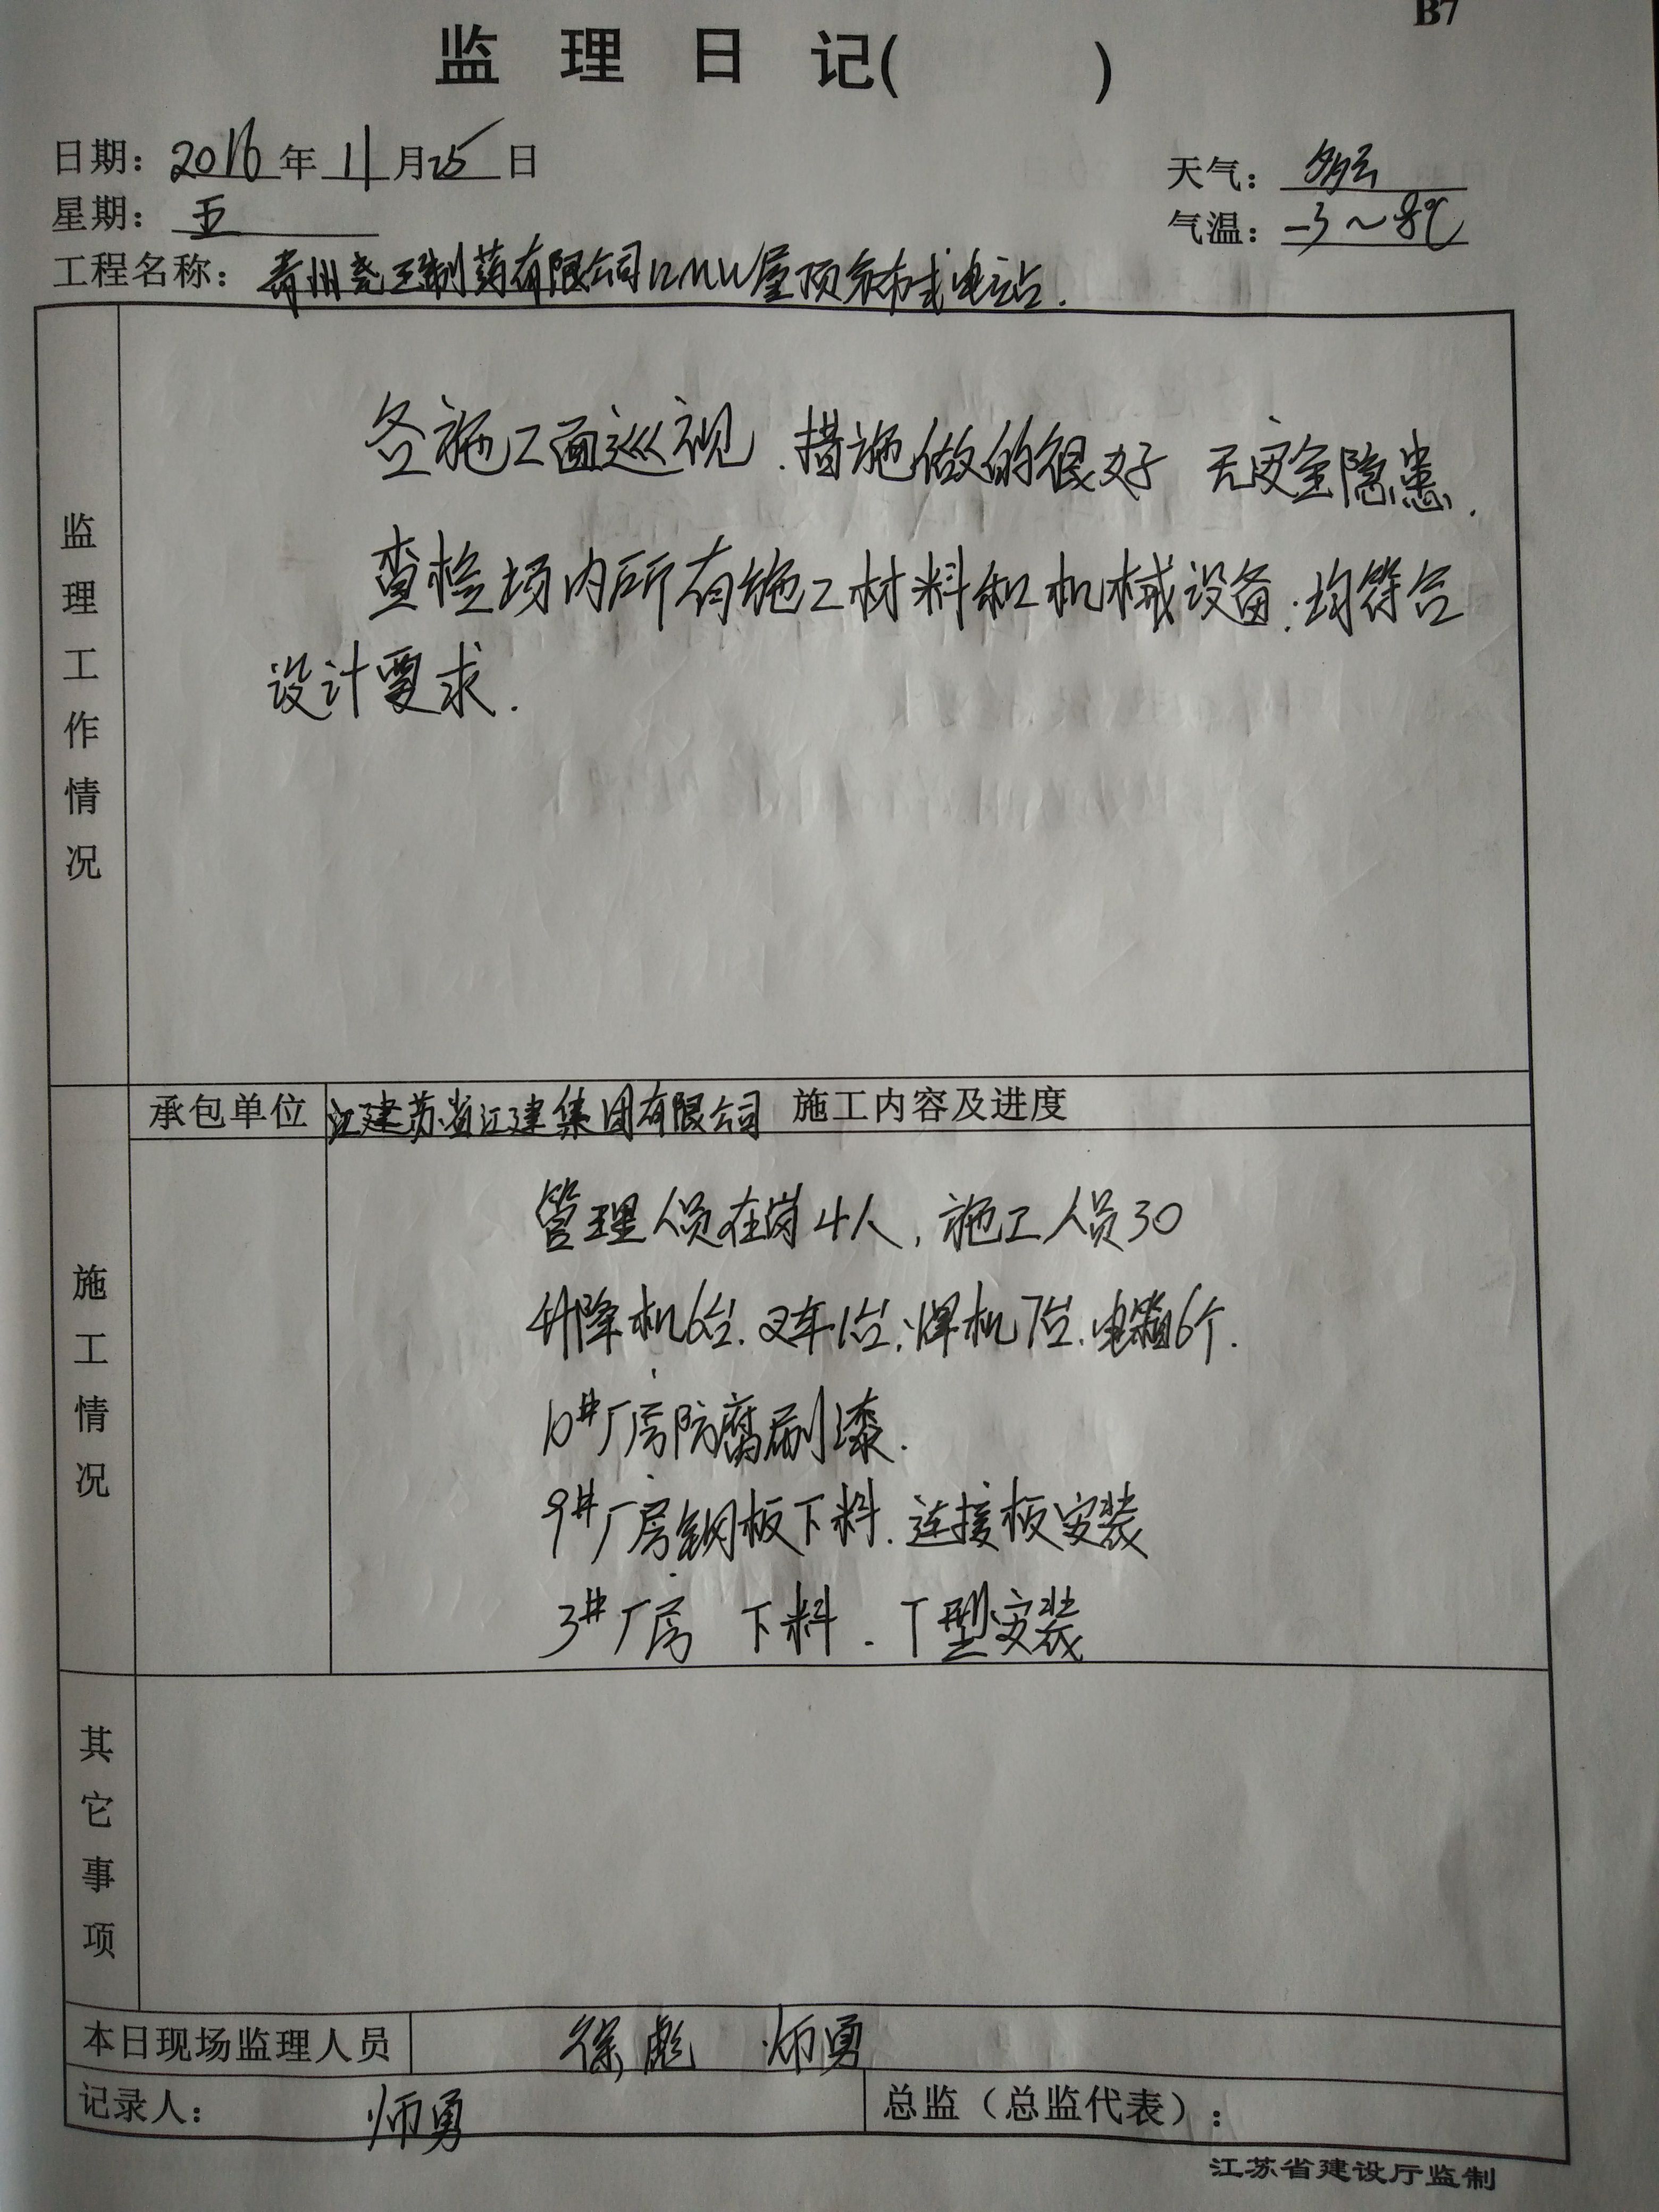 B7
监理日记( )
日期：2016年11月25日
天气：多云
星期：五
气温：-3～8℃
工程名称：青州尧王制药有限公司12MW屋顶分布式电站.
监理工作情况
各施工面巡视.措施做的很好 无安全隐患.
查检场内所有施工材料和机械设备.均符合
设计要求.
承包单位 江建苏省江建集团有限公司 施工内容及进度
施工情况
管理人员在岗4人，施工人员30
升降机6台.叉车1台.焊机7台.电箱6个.
10#厂房防腐刷漆.
9#厂房钢板下料.连接板安装
3#厂房 下料.T型安装
其它事项
本日现场监理人员 徐彪 师勇
记录人：师勇 总监（总监代表）：
江苏省建设厅监制